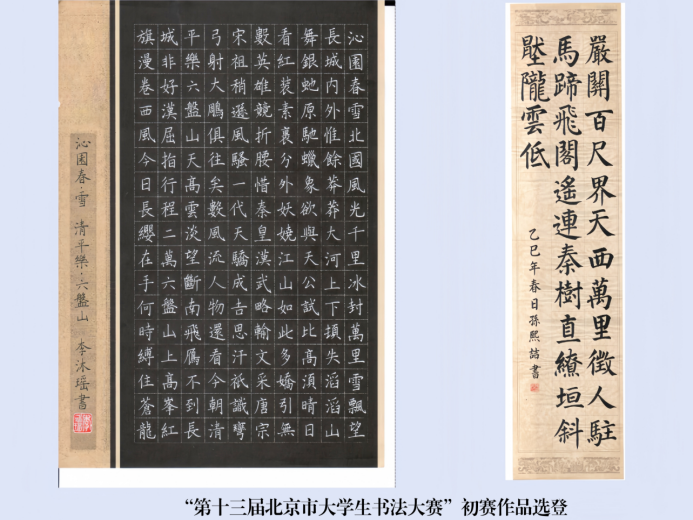 沁園春雪北國風光千里冰封萬里雪飄望
長城内外惟餘莽莽大河上下頓失滔滔山
舞銀虵原馳蠟象欲與天公試比高湏晴日
看紅裝素裹分外妖嬈江山如此多嬌引無
數英雄競折腰惜秦皇漢武略輸文采唐宗
宋祖稍遜風騷一代天驕成吉思汗祇識彎
弓射大鵰俱往矣數風流人物還看今朝清
平樂六盤山天高雲淡望斷南飛鴈不到長
城非好漢屈指行程二萬六盤山上高峯紅
旗漫卷西風今日長纓在手何時縛住蒼龍
沁園春·雪 清平樂·六盤山 李沐瑶書
嚴關百尺界天西萬里徵人駐
馬蹄飛閣遙連秦樹直繚垣斜
壓隴雲低
乙巳年春日孫熙喆書
“第十三届北京市大学生书法大赛”初赛作品选登